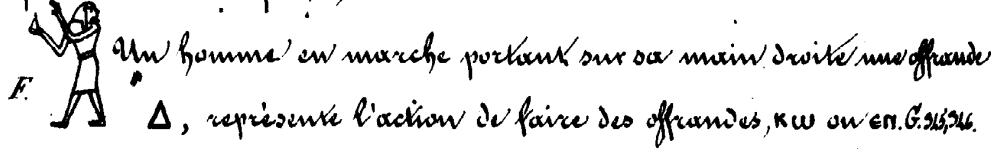 Un homme en marche portant sur sa main droite une offrande
F. Δ, représente l'action de faire des offrandes, ⲕⲱ ou ⲉⲛ. G. 345, 346.